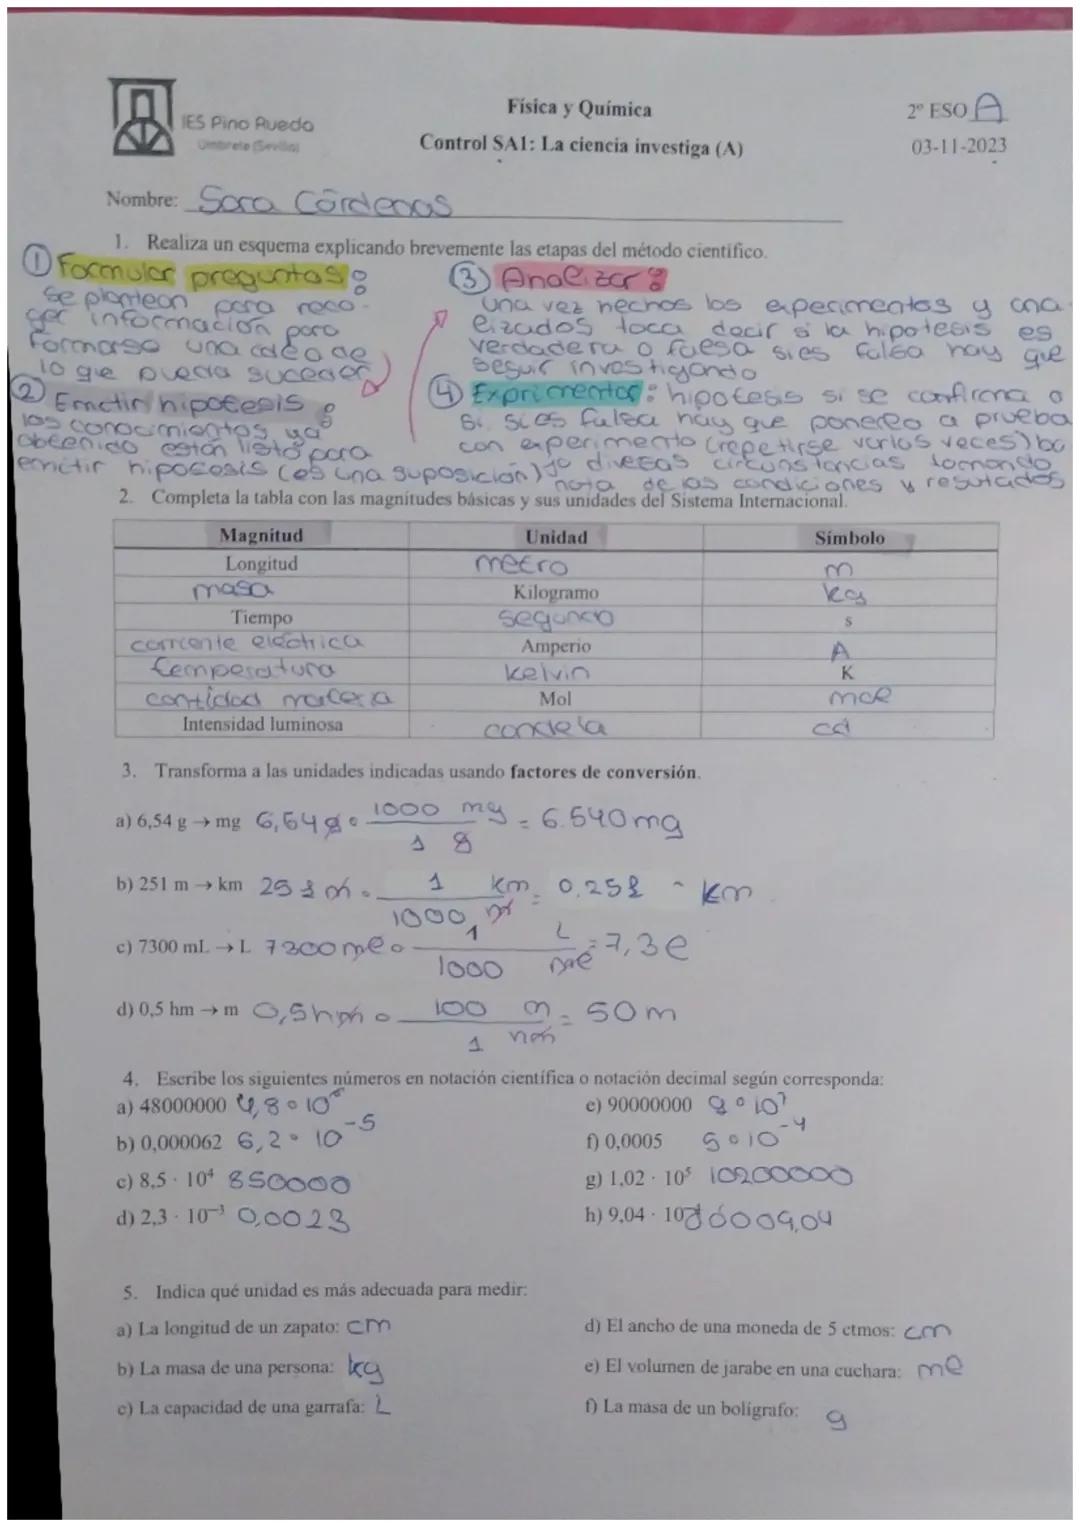 IES Pino Rueda
Umbrete (Sevilla)
Física y Química
Control SA1: La ciencia investiga (A)
2º ESO A
03-11-2023
Nombre: Sara Cárdenas
1. Realiza un esquema explicando brevemente las etapas del método científico.
① Formular preguntas:
Se plantean para reco-
ger información para
formarse una idea de
lo que pueda suceder
② Emitir hipótesis:
los conocimientos ya
obtenido están listo para
emitir hipotesis (es una suposición)
③ Analizar:
Una vez hechos los experimentos y ana-
lizados toca decir si la hipotesis es
verdadera o falsa si es falsa hay que
seguir investigando
④ Exprimentar: hipotesis si se confirma o
si. si es falsa hay que ponerlo a prueba
con experimento (repetirse varios veces) ba
jo diversas circunstancias tomando
nota de las condiciones y resultados
2. Completa la tabla con las magnitudes básicas y sus unidades del Sistema Internacional.
Magnitud Unidad Símbolo
Longitud metro m
masa Kilogramo kg
Tiempo segundo s
corriente eléctrica Amperio A
temperatura kelvin K
cantidad materia Mol mol
Intensidad luminosa candela cd
3. Transforma a las unidades indicadas usando factores de conversión.
a) 6,54 g → mg 6,54g · 1000 mg = 6.540mg
1 g
b) 251 m → km 251 m · 1 km = 0,251 km
1000 m
c) 7300 mL → L 7300ml · 1 L = 7,3l
1000 ml
d) 0,5 hm → m 0,5hm · 100 m = 50m
1 hm
4. Escribe los siguientes números en notación científica o notación decimal según corresponda:
a) 48000000 4,8·10⁶
e) 90000000 9·10⁷
b) 0,000062 6,2·10⁻⁵
f) 0,0005 5·10⁻⁴
c) 8,5 · 10⁴ 850000
g) 1,02 · 10⁵ 10200000
d) 2,3 · 10⁻³ 0,0023
h) 9,04 · 10
5. Indica qué unidad es más adecuada para medir:
a) La longitud de un zapato: cm
d) El ancho de una moneda de 5 ctmos: cm
b) La masa de una persona: kg
e) El volumen de jarabe en una cuchara: ml
c) La capacidad de una garrafa: L
f) La masa de un bolígrafo: g